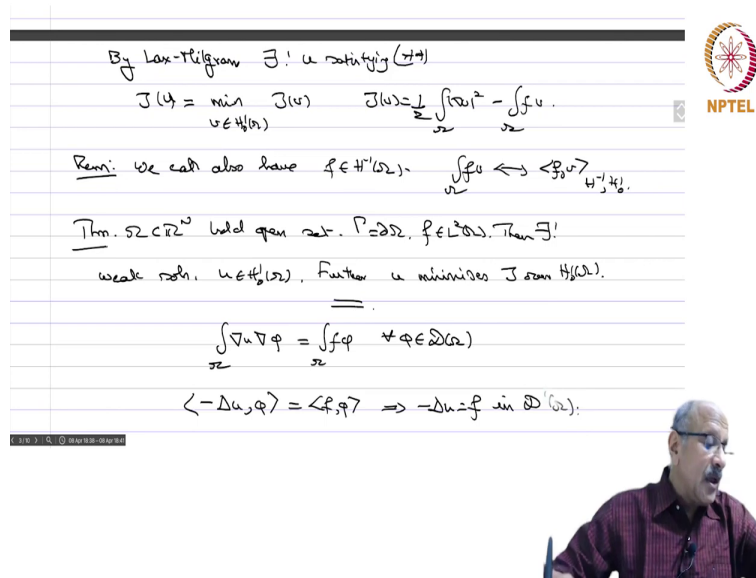 By Lax-Milgram ∃! u satisfying (**)
J(u) = min_{v∈H₀¹(Ω)} J(v)   J(v) = ½ ∫_Ω |∇v|² − ∫_Ω fv.
NPTEL
Rem: We can also have f ∈ H⁻¹(Ω).   ∫_Ω fv ↔ <f, v>_{H⁻¹, H₀¹}.
Thm. Ω ⊂ ℝᴺ bdd open set. Γ = ∂Ω. f ∈ L²(Ω). Then ∃!
weak soln. u ∈ H₀¹(Ω). Further u minimises J over H₀¹(Ω).
∫_Ω ∇u ∇φ = ∫_Ω fφ   ∀ φ ∈ 𝒟(Ω)
<−Δu, φ> = <f, φ> ⇒ −Δu = f in 𝒟'(Ω).
3/10 08 Apr 18:38 - 08 Apr 18:41